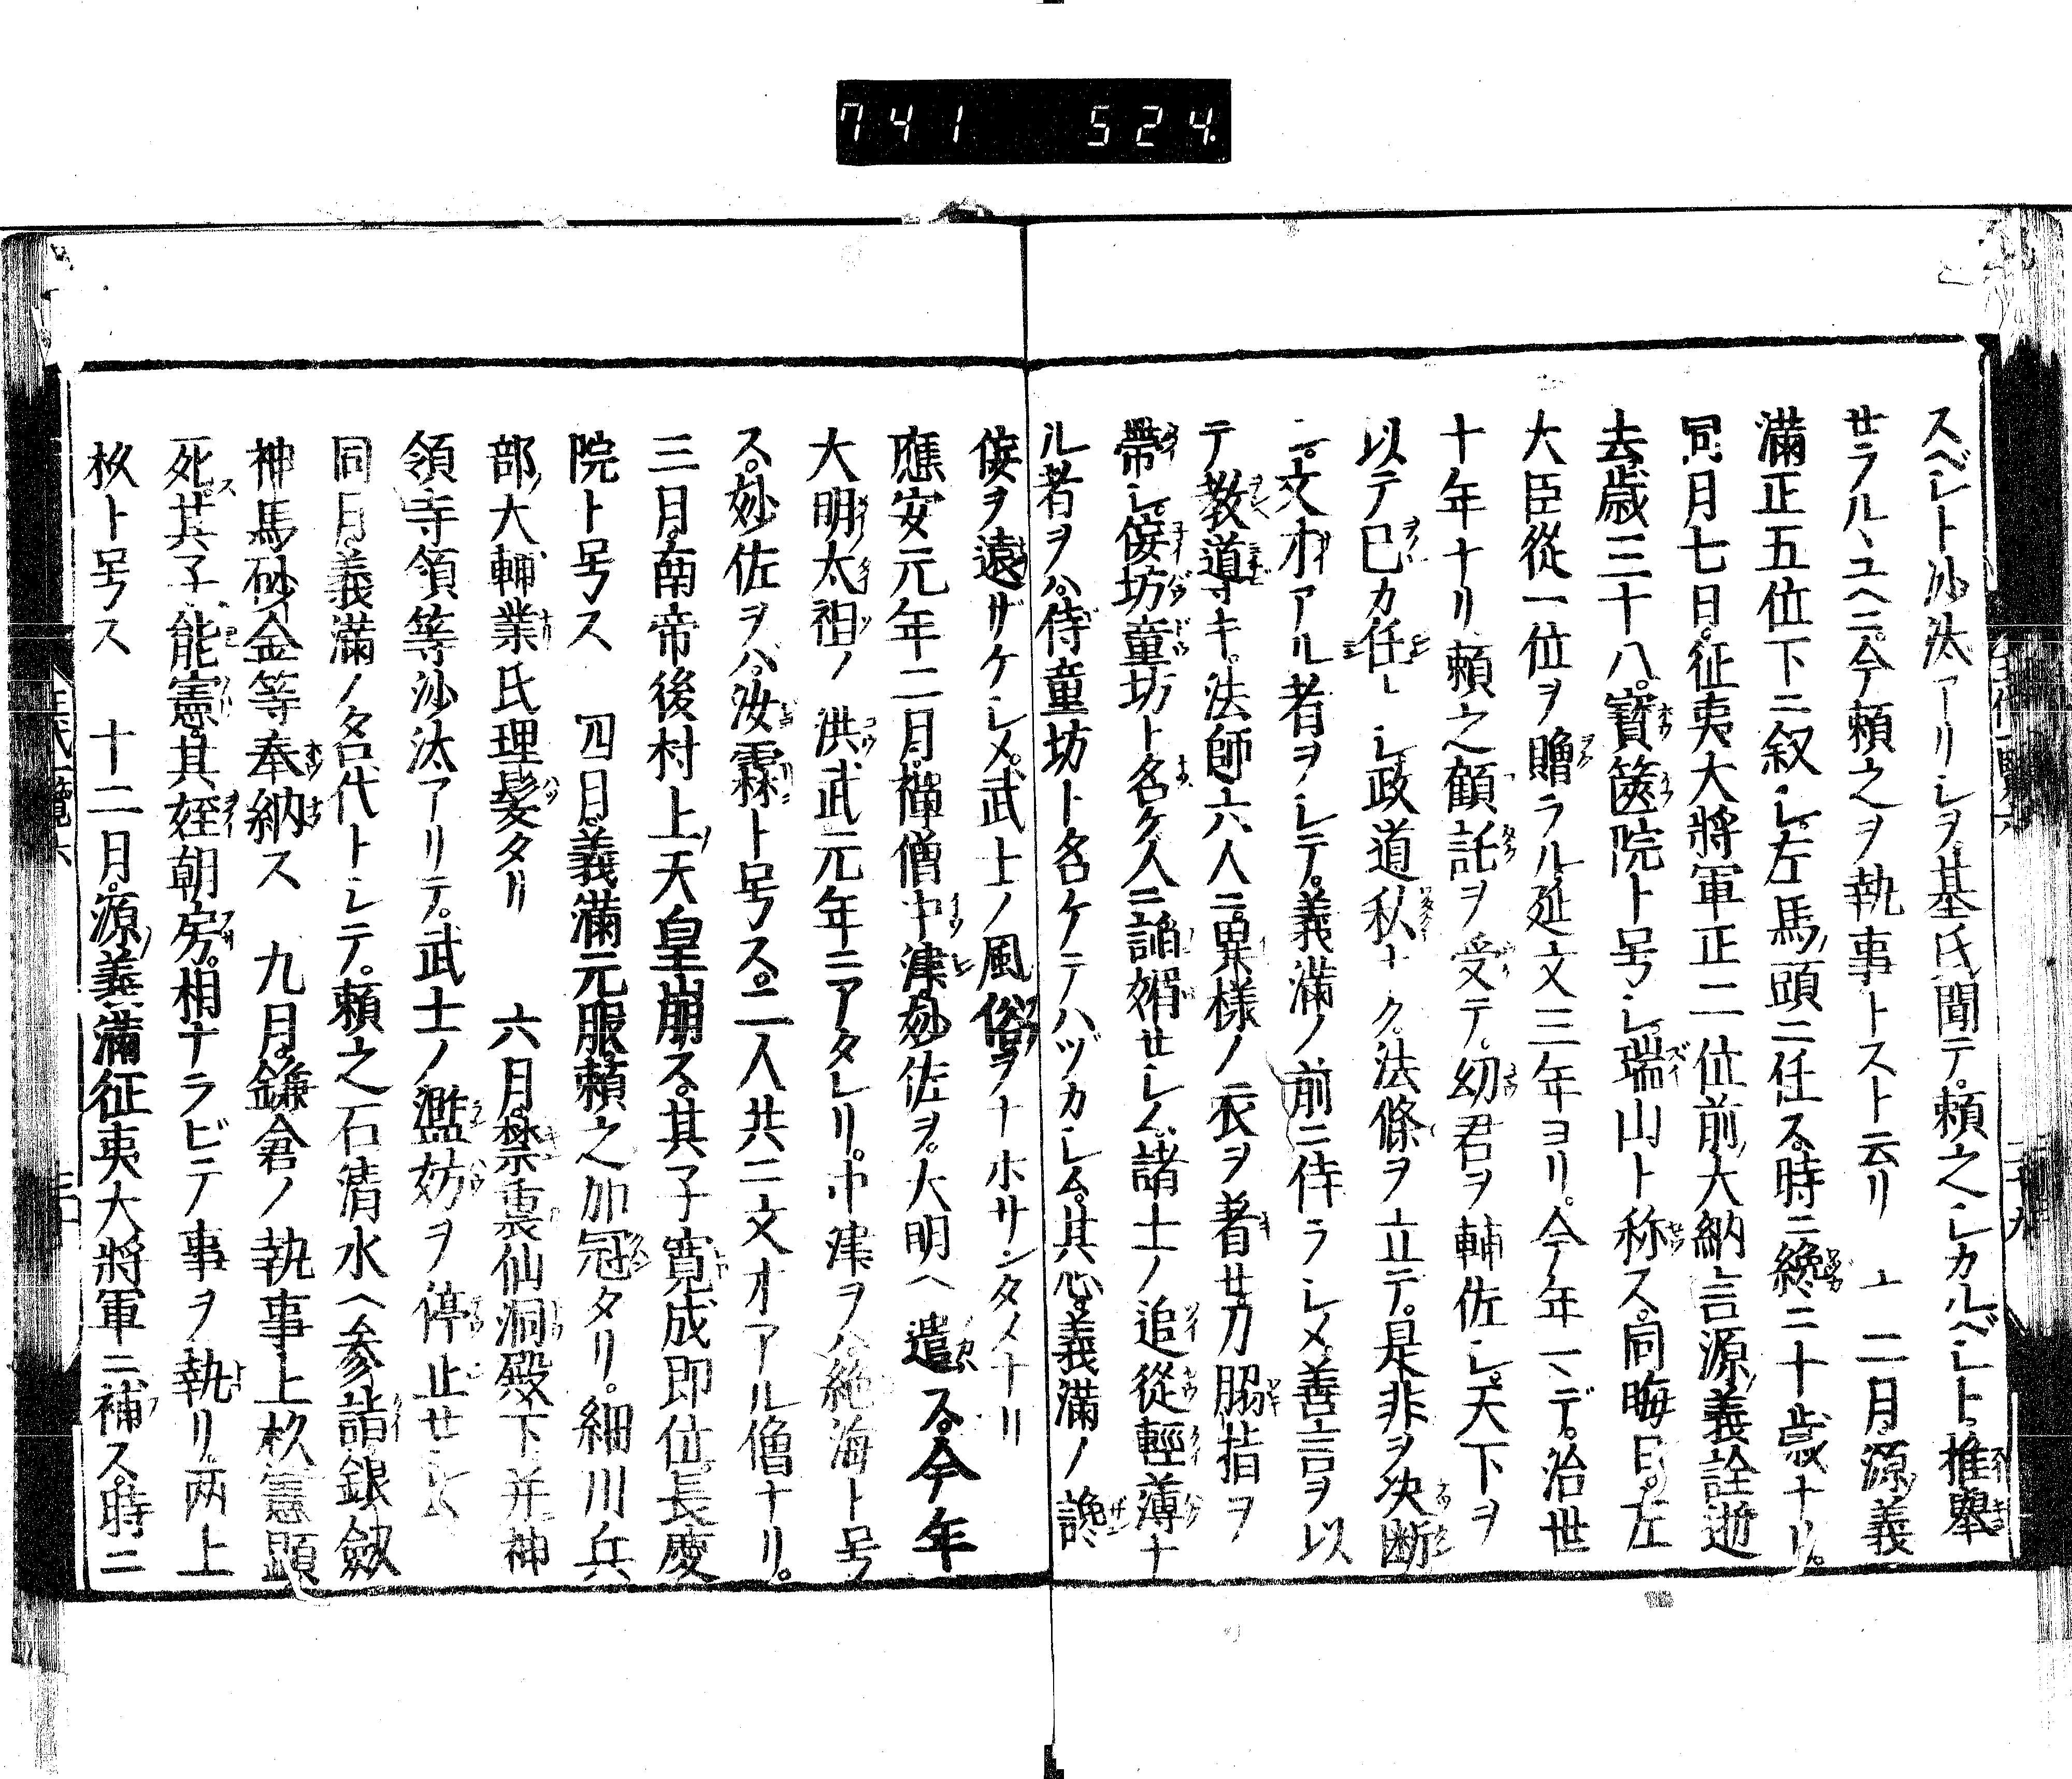 741 524.
スベシト沙汰アリシヲ基氏聞テ。頼之シカルベシト。推舉
サラルヽユヘニ。今頼之ヲ執事トスト云リ 十二月。源義
滿正五位下ニ叙シ。左馬頭ニ任ス。時ニ纔ニ十歳ナリ。
同月七日。征夷大將軍正二位前大納言源義詮逝
去歳三十八。寳篋院ト号シ。瑞山ト称ス。同晦日。左
大臣從一位ヲ贈ラル。延文三年ヨリ。今年マデ。治世
十年ナリ 頼之顧託ヲ受テ。幼君ヲ輔佐シ。天下ヲ
以テ已カ任トシ政道私ナク。法條ヲ立テ。是非ヲ決断
ニ。文才アル者ヲシテ。義滿ノ前ニ侍ラシメ。善言ヲ以
テ教導キ。法師六人ニ。異様ノ衣ヲ著セ。刀脇指ヲ
帶シ。侫坊童坊ト名ケ。人ニ諂媚セシム。諸士ノ追從輕薄ナ
ル者ヲハ。侍童坊ト名ケテハヅカシム。其心。義滿ノ讒
侫ヲ遠ザケシメ。武士ノ風俗ヲナホサンタメナリ
應安元年二月。禪僧中津妙佐ヲ。大明ヘ遣ス。今年
大明太祖ノ洪武元年ニアタレリ。中津ヲハ。絶海ト号
ス。妙佐ヲハ。汝霖ト号ス。二人共ニ文才アル僧ナリ。
三月。南帝後村上天皇崩ス。其子寛成即位。長慶
院ト号ス 四月。義滿元服。頼之加冠タリ。細川兵
部大輔業氏理髪タリ 六月。禁裏仙洞殿下并神
領寺領等沙汰アリテ。武士ノ濫妨ヲ停止セシム
同月。義滿ノ名代トシテ。頼之石清水ヘ参詣銀劔
神馬砂金等奉納ス 九月。鎌倉ノ執事上杉憲顕
死。其子能憲。其姪朝房。相ナラビテ事ヲ執リ。両上
杉ト号ス 十二月。源義滿征夷大將軍ニ補ス。時ニ